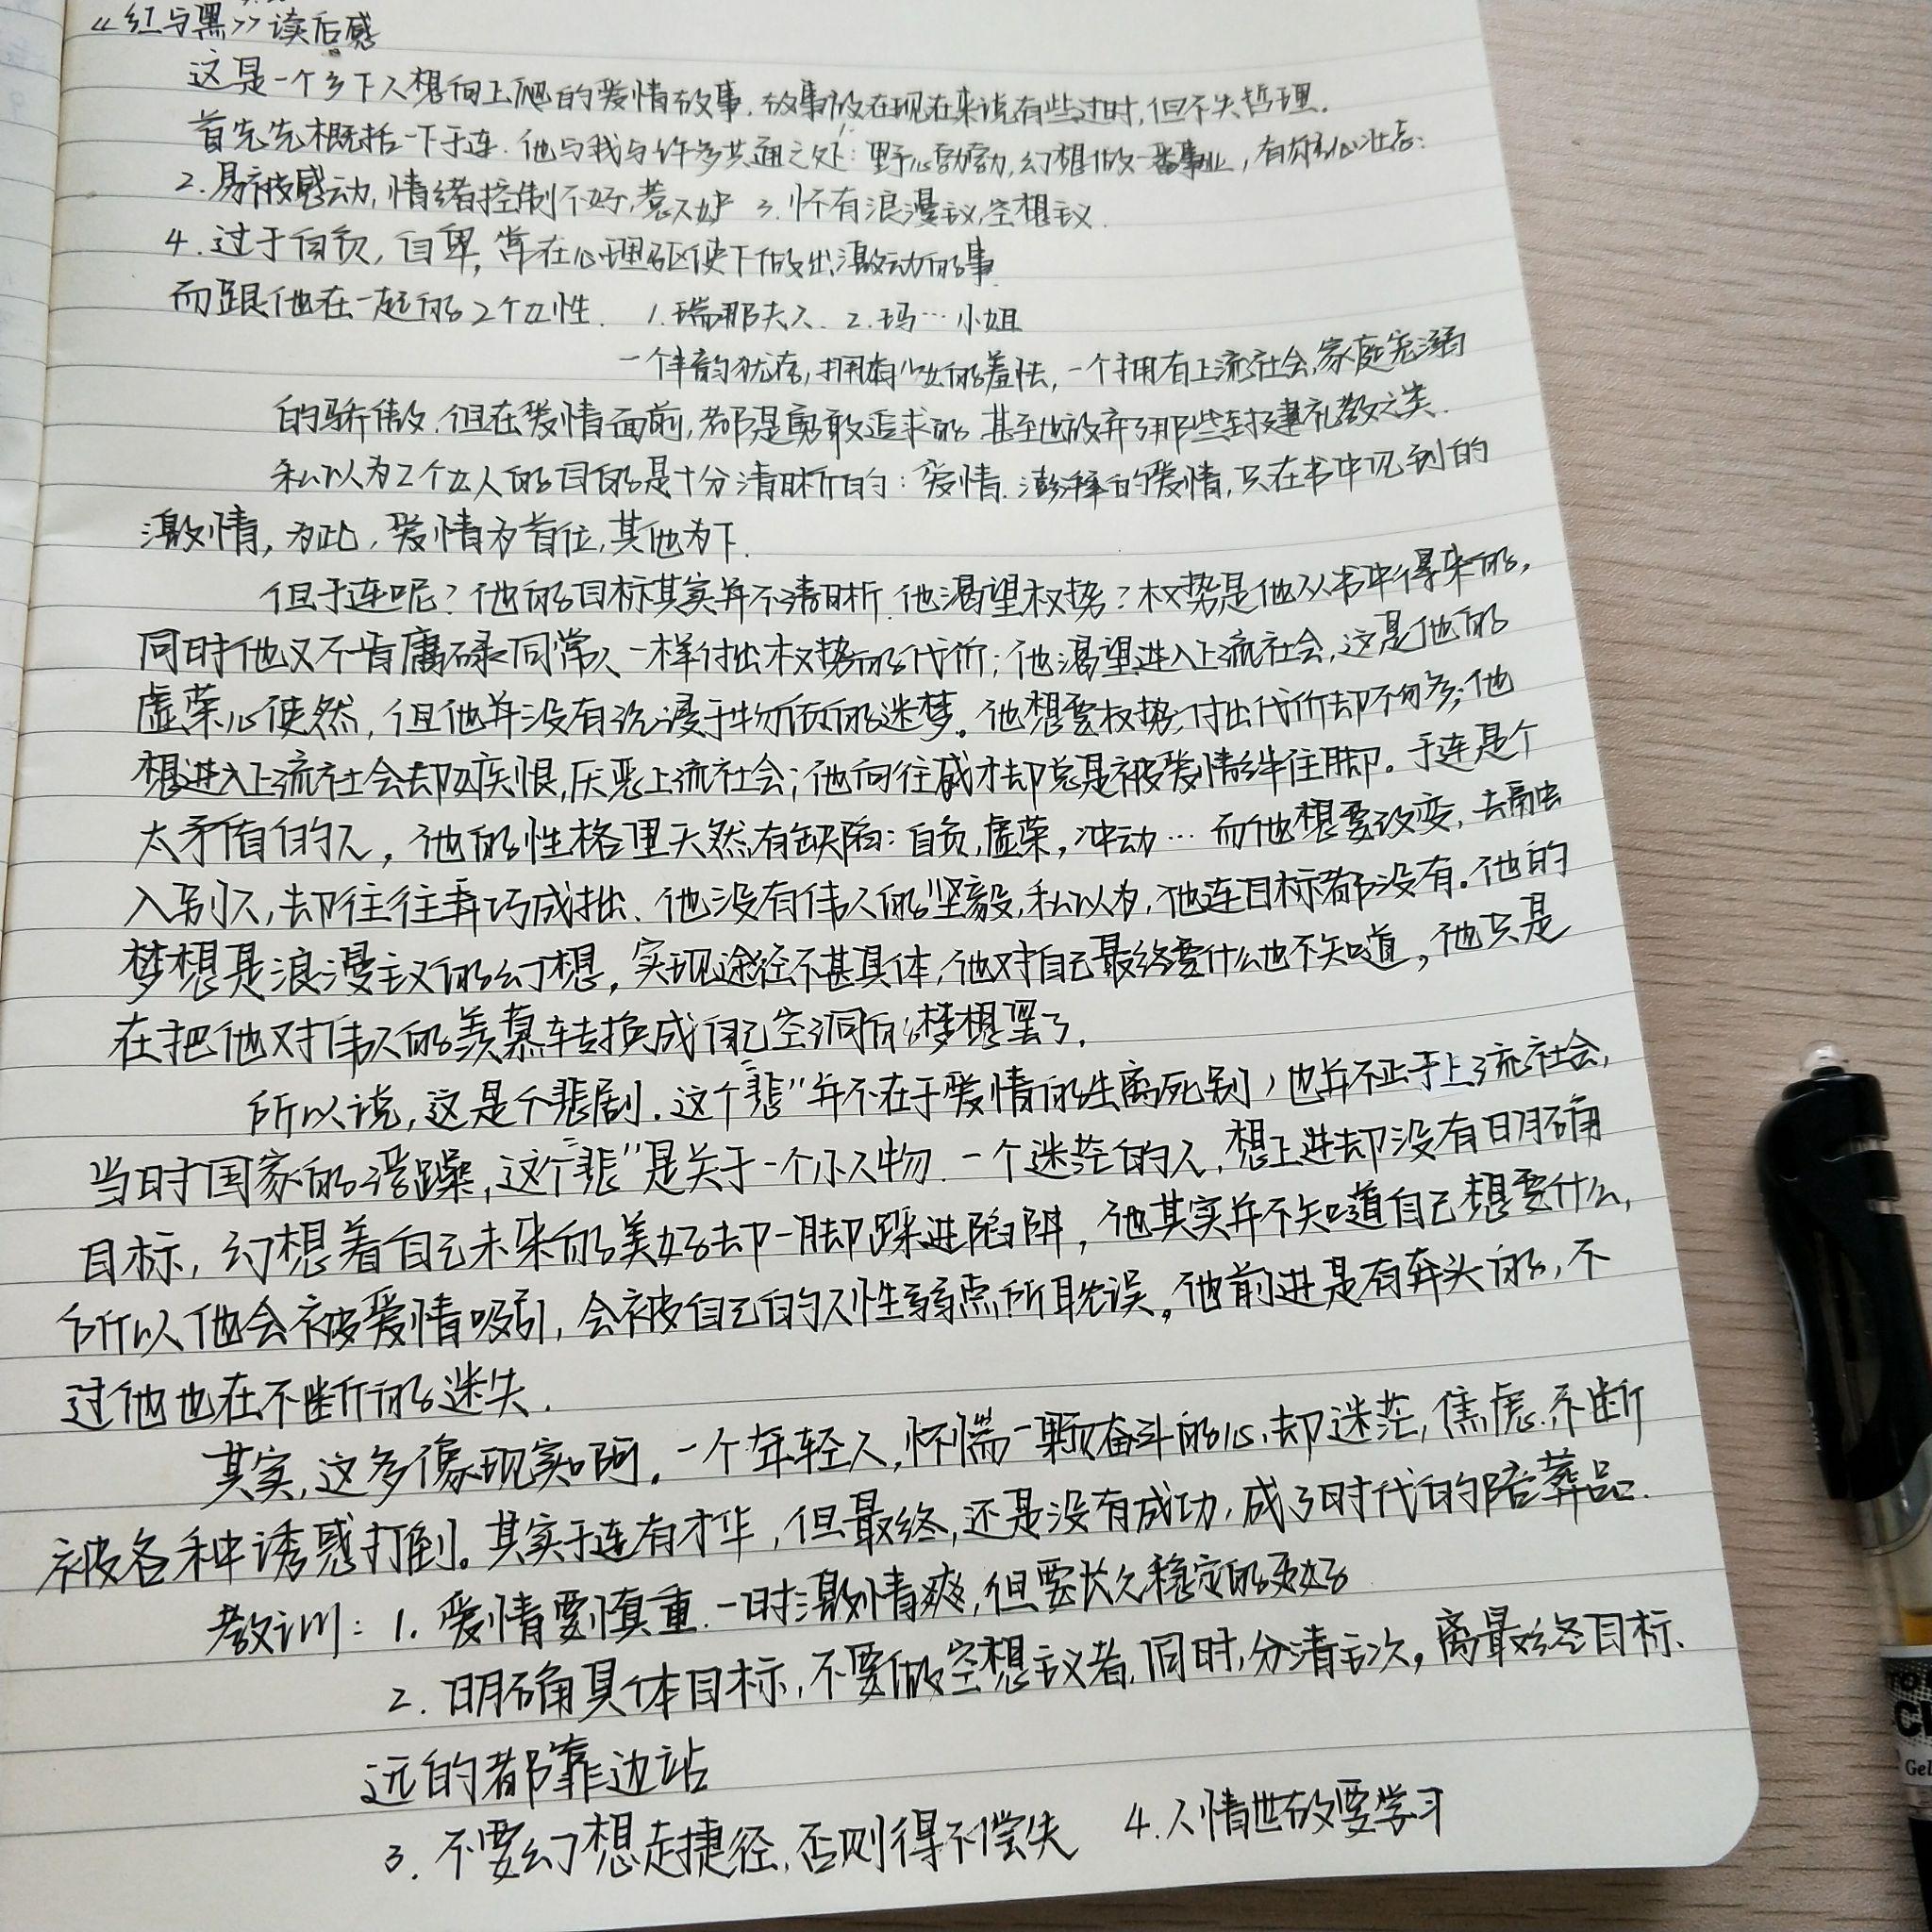 《红与黑》读后感
这是一个乡下人想向上爬的爱情故事.故事放在现在来说有些过时,但不失哲理.
首先先概括一下于连.他与我与许多共通之处:野心勃勃,幻想做一番事业,有雄心壮志.
2.易被感动,情绪控制不好,惹人妒 3.怀有浪漫主义,空想主义.
4.过于自负,自卑,常在心理驱使下做出激动的事
而跟他在一起的2个女性. 1.瑞那夫人. 2.玛…小姐
一个丰韵犹存,拥有少女的羞怯,一个拥有上流社会,家庭宠溺
的骄傲.但在爱情面前,都是勇敢追求的.甚至也放弃了那些封建礼教之类.
私以为2个女人的目的是十分清晰的:爱情.澎湃的爱情,只在书中见到的
激情,为此,爱情为首位,其他为下.
但于连呢?他的目标其实并不清晰.他渴望权势?权势是他从书中得来的,
同时他又不肯庸碌同常人一样付出权势的代价;他渴望进入上流社会,这是他的
虚荣心使然,但他并没有沉浸于物质的迷梦。他想要权势,付出代价却不够多;他
想进入上流社会却又嫉恨,厌恶上流社会;他向往战才却总是被爱情绊住脚。于连是个
太矛盾的人,他的性格里天然有缺陷:自负,虚荣,冲动…而他想要改变,去融
入别人,却往往弄巧成拙.他没有伟人的坚毅,私以为,他连目标都没有。他的
梦想是浪漫主义的幻想,实现途径不甚具体,他对自己最终要什么也不知道,他只是
在把他对伟人的羡慕转换成自己空洞的梦想罢了.
所以说,这是个悲剧.这个"悲"并不在于爱情的生离死别,也并不止于上流社会,
当时国家的浮躁,这个"悲"是关于一个小人物.一个迷茫的人,想上进却没有明确
目标,幻想着自己未来的美好却一脚踩进陷阱,他其实并不知道自己想要什么,
所以他会被爱情吸引,会被自己的人性弱点所耽误。他前进是有奔头的,不
过他也在不断的迷失.
其实,这多像现实啊。一个年轻人,怀惴一颗奋斗的心,却迷茫,焦虑.不断
被各种诱惑打倒。其实于连有才华,但最终,还是没有成功,成了时代的陪葬品.
教训:1.爱情要慎重.一时激情爽,但要长久稳定的更好
2.明确具体目标,不要做空想主义者,同时,分清主次,离最终目标、
远的都靠边站
3.不要幻想走捷径,否则得不偿失 4.人情世故要学习
Gel